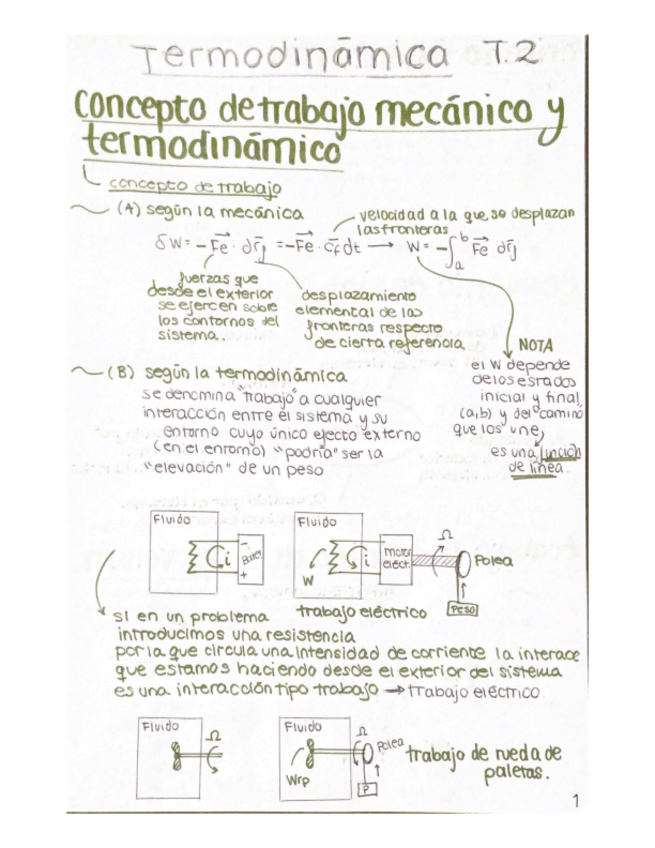 Termodinámica T.2
concepto de trabajo mecánico y
termodinámico
concepto de trabajo
(A) según la mecánica
velocidad a la que se desplazan
las fronteras
δW = - Fe · drf = - Fe · cf dt → W = - ∫ab Fe drf
fuerzas que
desde el exterior
se ejercen sobre
los contornos del
sistema.
desplazamiento
elemental de las
fronteras respecto
de cierta referencia
NOTA
el W depende
de los estados
inicial y final
(a,b) y del "camino"
que los une,
es una función
de línea.
(B) según la termodinámica
se denomina "trabajo" a cualquier
interacción entre el sistema y su
entorno cuyo único efecto externo
(en el entorno) "podría" ser la
"elevación" de un peso
Fluido
i
-
+
Fluido
W
i
motor
elect.
Ω
Polea
Peso
trabajo eléctrico
si en un problema
introducimos una resistencia
por la que circula una intensidad de corriente la interacc
que estamos haciendo desde el exterior del sistema
es una interacción tipo trabajo → trabajo eléctrico
Fluido
Ω
Fluido
Wrp
Ω
Polea
P
trabajo de rueda de
paletas.
1